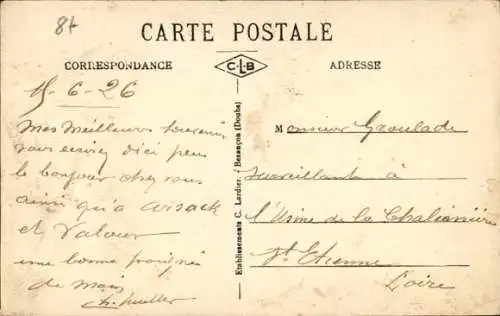 84
CARTE POSTALE
CORRESPONDANCE
CLB
ADRESSE
15-6-26
Mes Meilleurs Souvenirs
vous d'ici peu
le bonjour chez vous
ainsi qu'a
et Valour
une bonne poignée
de Main
Ch. Muller
Etablissements C. Lardier - Besançon (Doubs)
Monsieur Groulade
Surveillant à
l'Usine de la Chaleassière
St Etienne
Loire